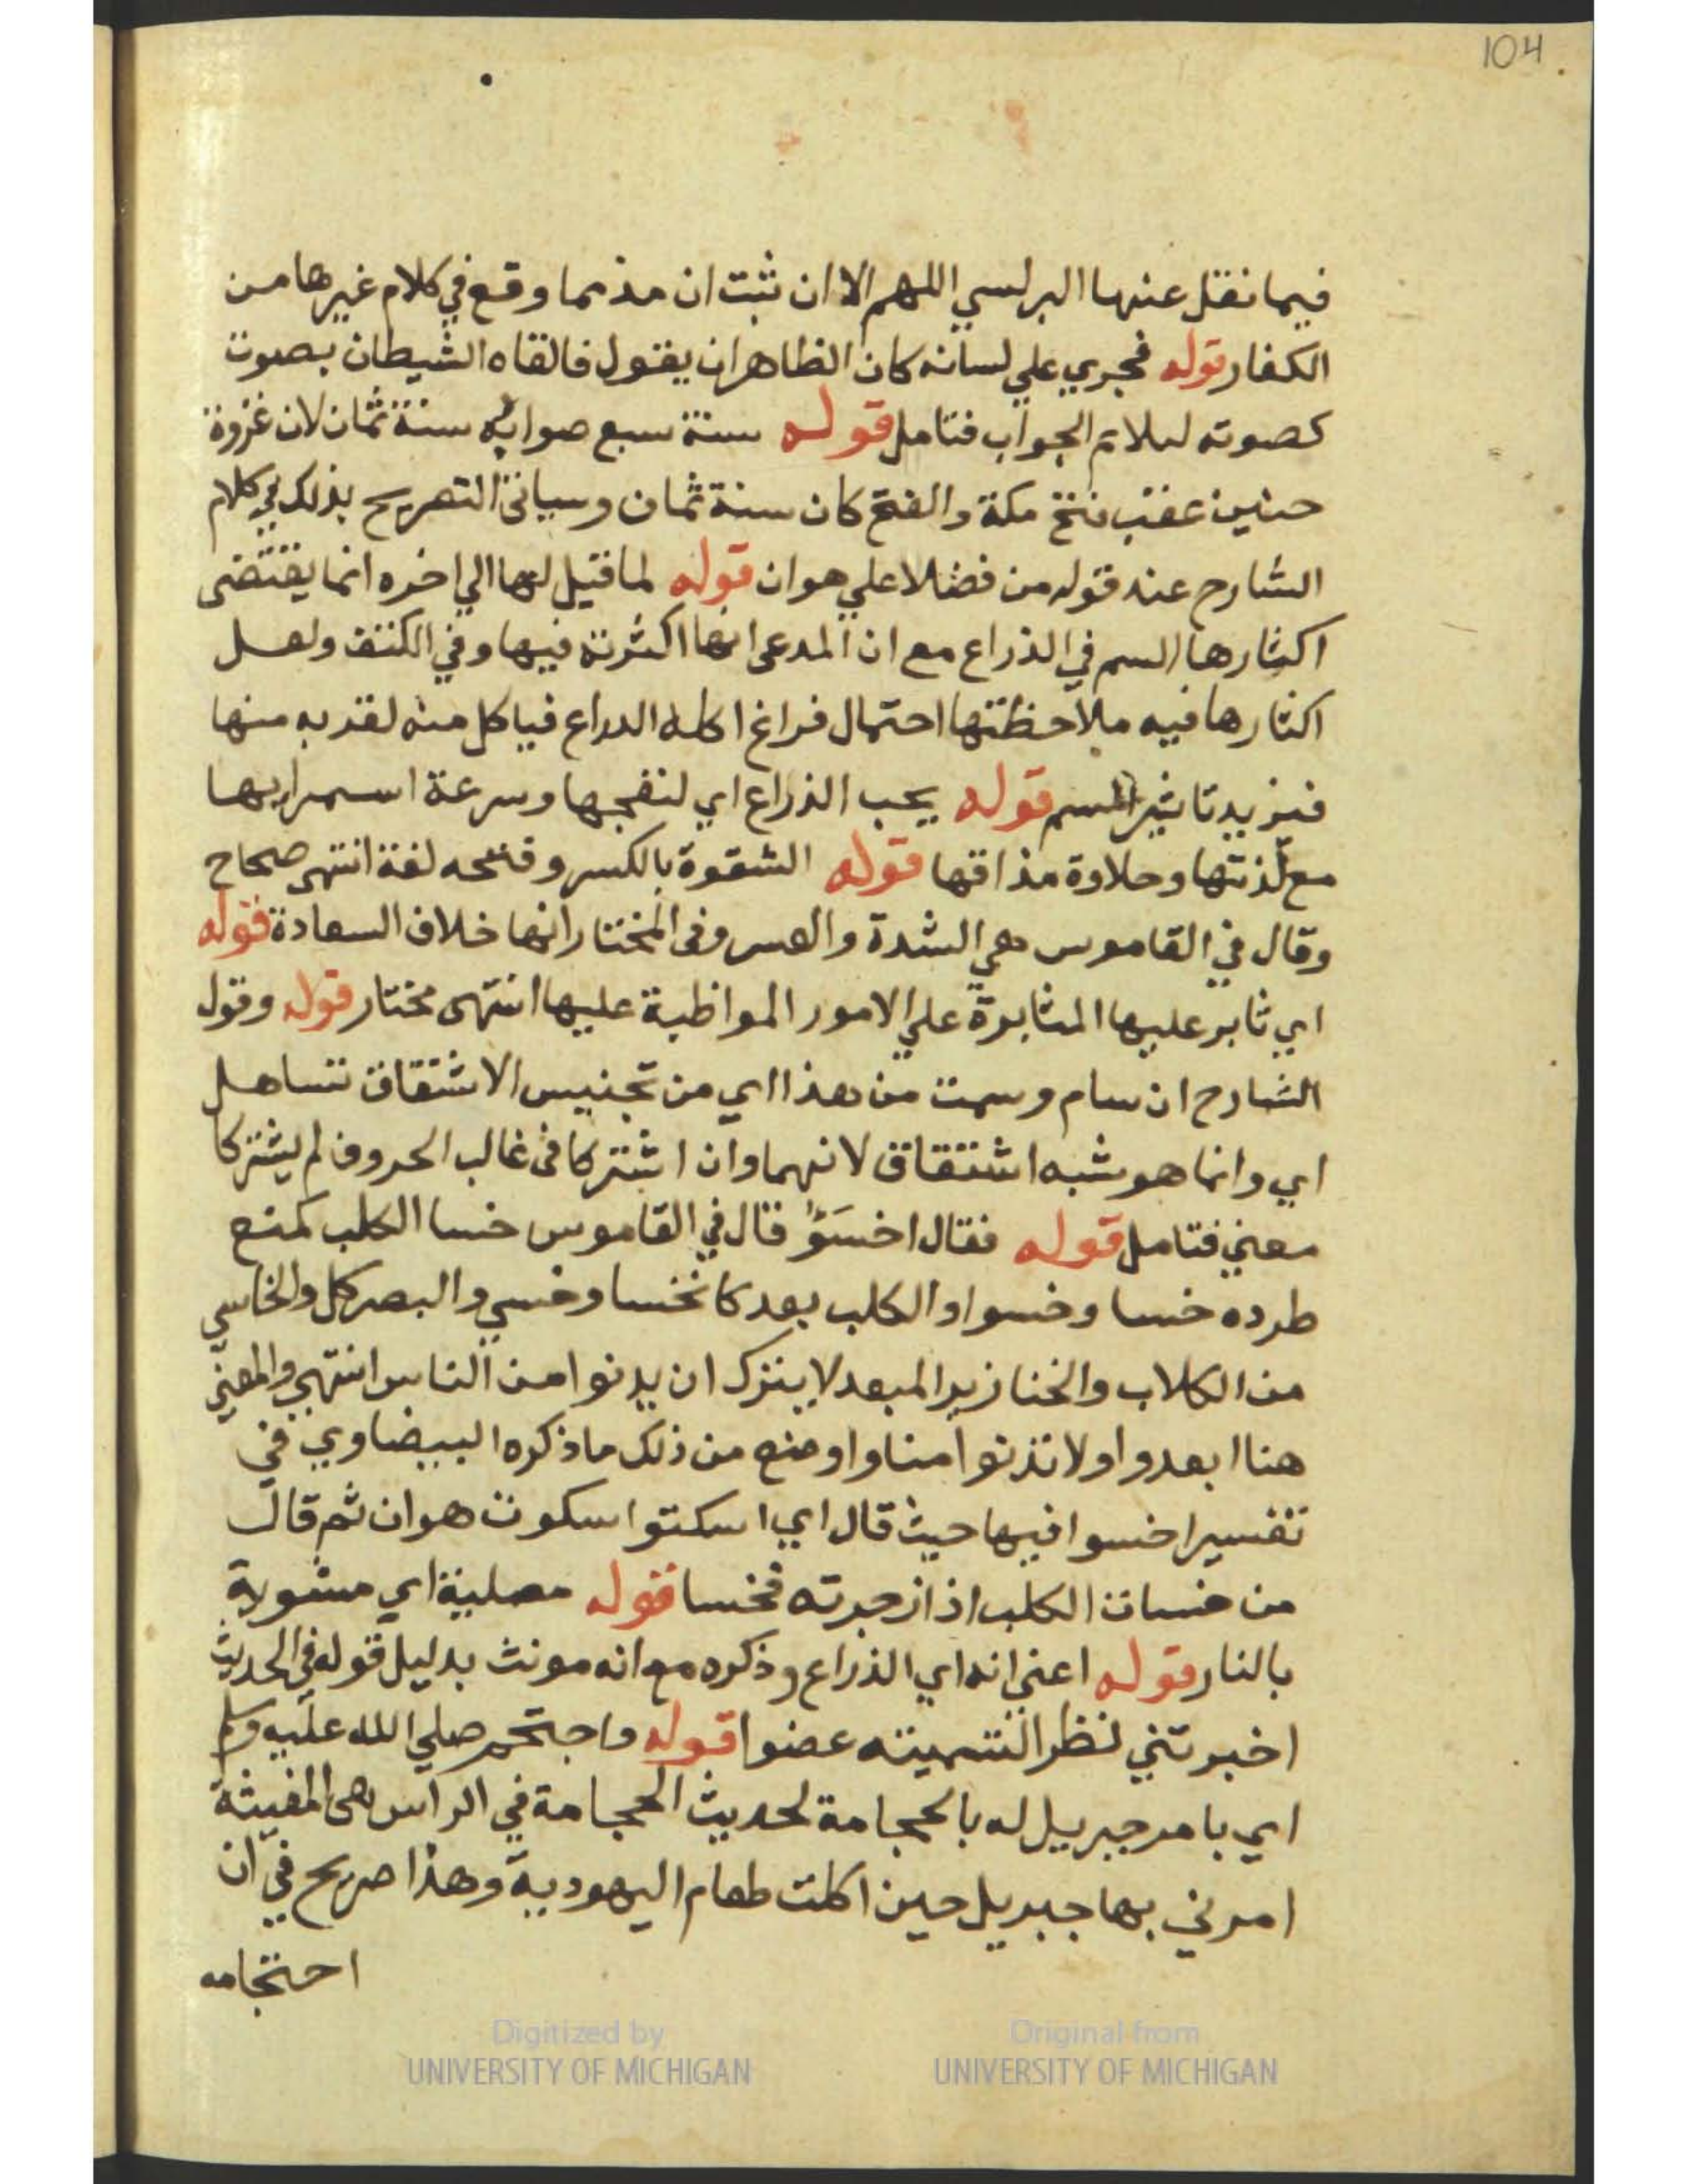 104
فيما نقل عنها البرلسي اللهم الا ان ثبت ان مذمما وقع في كلام غيرها من
الكفار قوله فجري علي لسانه كان الظاهر ان يقول فالقاه الشيطان بصوت
كصوته ليلايم الجواب فتامل قوله سنة سبع صوابه سنة ثمان لان غزوة
حنين عقب فتح مكة والفتح كان سنة ثمان وسياتي التصريح بذلك في كلام
الشارح عند قوله من فضلا علي هوان قوله لما قيل لها الي اخره انما يقتضي
اكثارها السم في الذراع مع ان المدعي انها اكثرته فيها وفي الكتف ولعل
اكثارها فيه ملاحظتها احتمال فراغ اكله الدراع فياكل منه لقربه منها
فيزيد تاثير السم قوله يحب الذراع اي لنضجها وسرعة اسمرايها
مع لذتها وحلاوة مذاقها قوله الشقوة بالكسر وفتحه لغة انتهي صحاح
وقال في القاموس هي الشدة والعسر وفي المختار انها خلاف السعادة قوله
اي ثابر عليها المثابرة علي الامور المواظبة عليها انتهي مختار قوله وقول
الشارح ان سام وسمت من هذا اي من تجنيس الاشتقاق تساهل
اي وانما هو شبه اشتقاق لانهما وان اشتركا في غالب الحروف لم يشتركا
معني فتامل قوله فقال اخسَؤُا قال في القاموس خسا الكلب كمنع
طرده خسا وخسوا والكلب بعد كانخسا وخسي والبصر كل والخاسي
من الكلاب والخنازير المبعد لا يترك ان يدنوا من الناس انتهي والمعني
هنا ابعدوا ولا تدنوا منا واوضح من ذلك ما ذكره البيضاوي في
تفسير اخسوا فيها حيث قال اي اسكتوا سكوت هوان ثم قال
من خسات الكلب اذ ازجرته فخسا قوله مصلية اي مشوية
بالنار قوله اعني انه اي الذراع وذكره مع انه مونث بدليل قوله في الحديث
اخبرتني نظرا لتسميته عضوا قوله واحتجم صلي الله عليه وسلم
اي بامر جبريل له بالحجامة لحديث الحجامة في الراس هي المغيثة
امرني بها جبريل حين اكلت طعام اليهودية وهذا صريح في ان
احتجامه
Digitized by
UNIVERSITY OF MICHIGAN
Original from
UNIVERSITY OF MICHIGAN